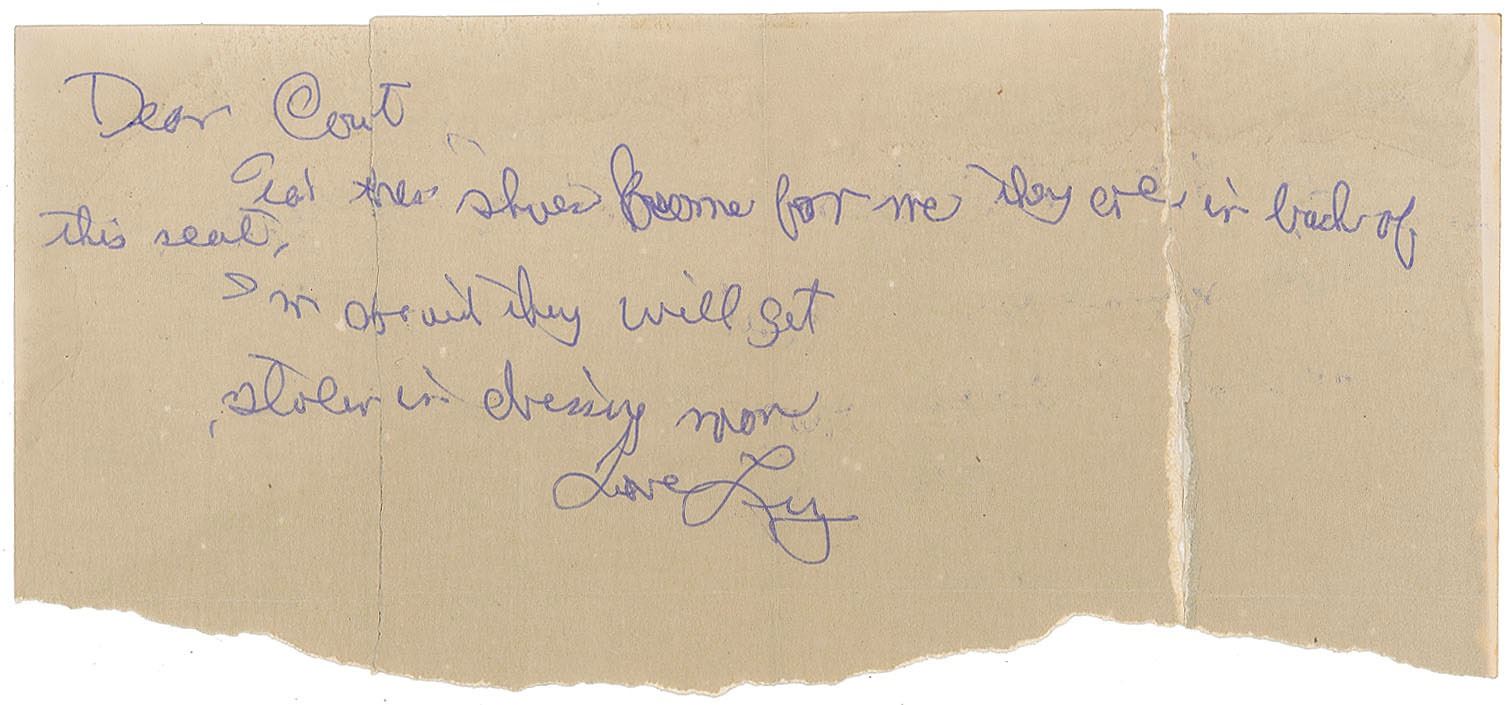 Dear Cout
Get these shoes home for me they are in back of
this seat,
I'm afraid they will get
stolen in dressing room
Love